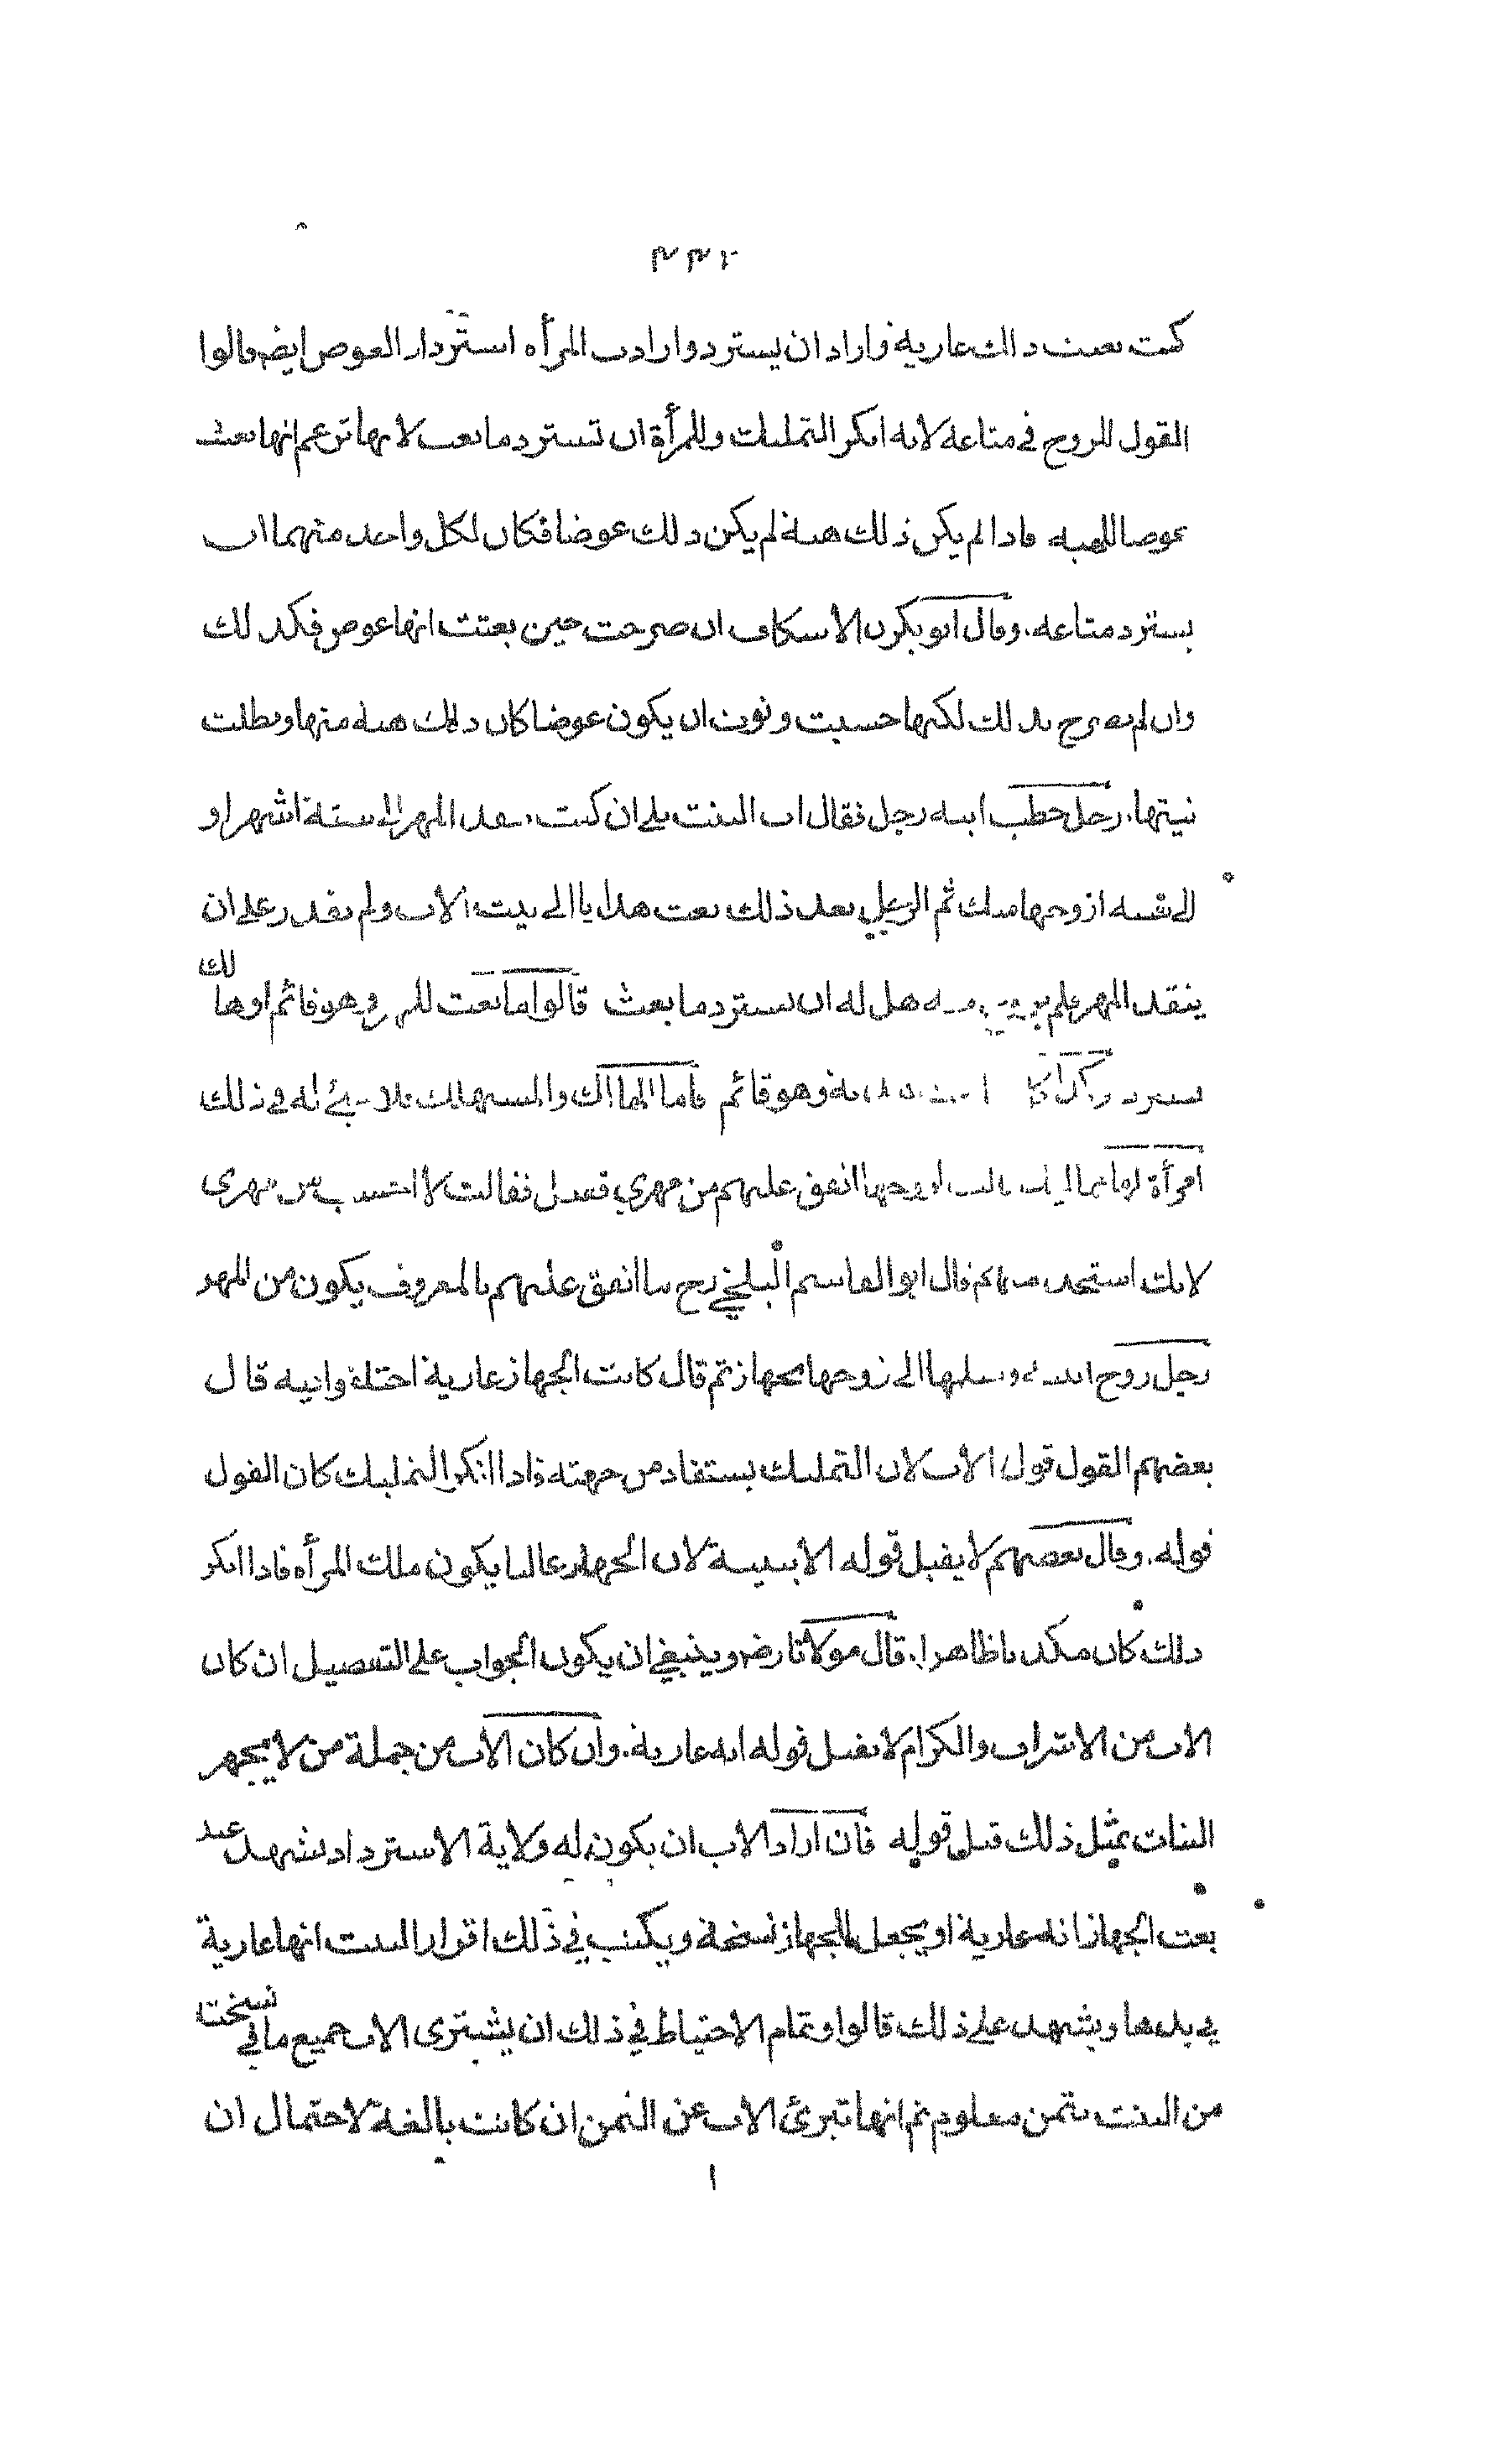 كنت بعثت ذلك عارية واراد ان يسترد وارادت المرأة استرداد العوض ايضا قالوا
القول للزوج في متاعه لانه انكر التمليك وللمرأة ان تسترد ما بعثت لانها تزعم انها بعثت
عوضا للهبة فاذا لم يكن ذلك هبة لم يكن ذلك عوضا فكان لكل واحد منهما ان
يسترد متاعه. وقال ابو بكر الاسكاف ان صرحت حين بعثت انها عوض فكذلك
وان لم يصرح بذلك لكنها حسبت ونوت ان يكون عوضا كان ذلك هبة منها وبطلت
نيتها. رجل خطب ابنة رجل فقال اب البنت بلى ان كنت تنقد المهر الى ستة اشهر او
الى سنة ازوجها منك ثم الرجل بعد ذلك بعث هدايا الى بيت الاب ولم يقدر على ان
ينقد المهر فلم هل له ان يسترد ما بعث قالوا ما بعث للمهر وهو قائم او هالك
يسترد وكذا وهو قائم فاما الهالك والمستهلك فلا شئ له في ذلك
امرأة لها لزوجها انفق عليهم من مهري ففعل فقالت لا احتسب من مهري
لانك استخدمتهم قال ابو القاسم البلخي رح ما انفق عليهم بالمعروف يكون من المهر
رجل زوج ابنته وسلمها الى زوجها بجهاز ثم قال كانت الجهاز عارية قال
بعضهم القول قول الاب لان التمليك يستفاد من جهته فاذا انكر التمليك كان القول
قوله. وقال بعضهم لا يقبل قوله الا ببينة لان الجهاز غالبا يكون ملك المرأة فاذا انكر
ذلك كان مكذبا ظاهرا. قال مولانا رض وينبغي ان يكون الجواب على التفصيل ان كان
الاب من الاشراف والكرام لا يقبل قوله انه عارية. وان كان الاب من جملة من لا يجهز
البنات بمثل ذلك قبل قوله فان اراد الاب ان يكون له ولاية الاسترداد يشهد عند
بعث الجهاز انه عارية او يجعل للجهاز نسخة ويكتب في ذلك اقرار البنت انها عارية
في يدها ويشهد على ذلك قالوا وتمام الاحتياط في ذلك ان يشترى الاب جميع ما في نسخت
من البنت بثمن معلوم ثم انها تبرئ الاب عن الثمن ان كانت بالغة لاحتمال ان